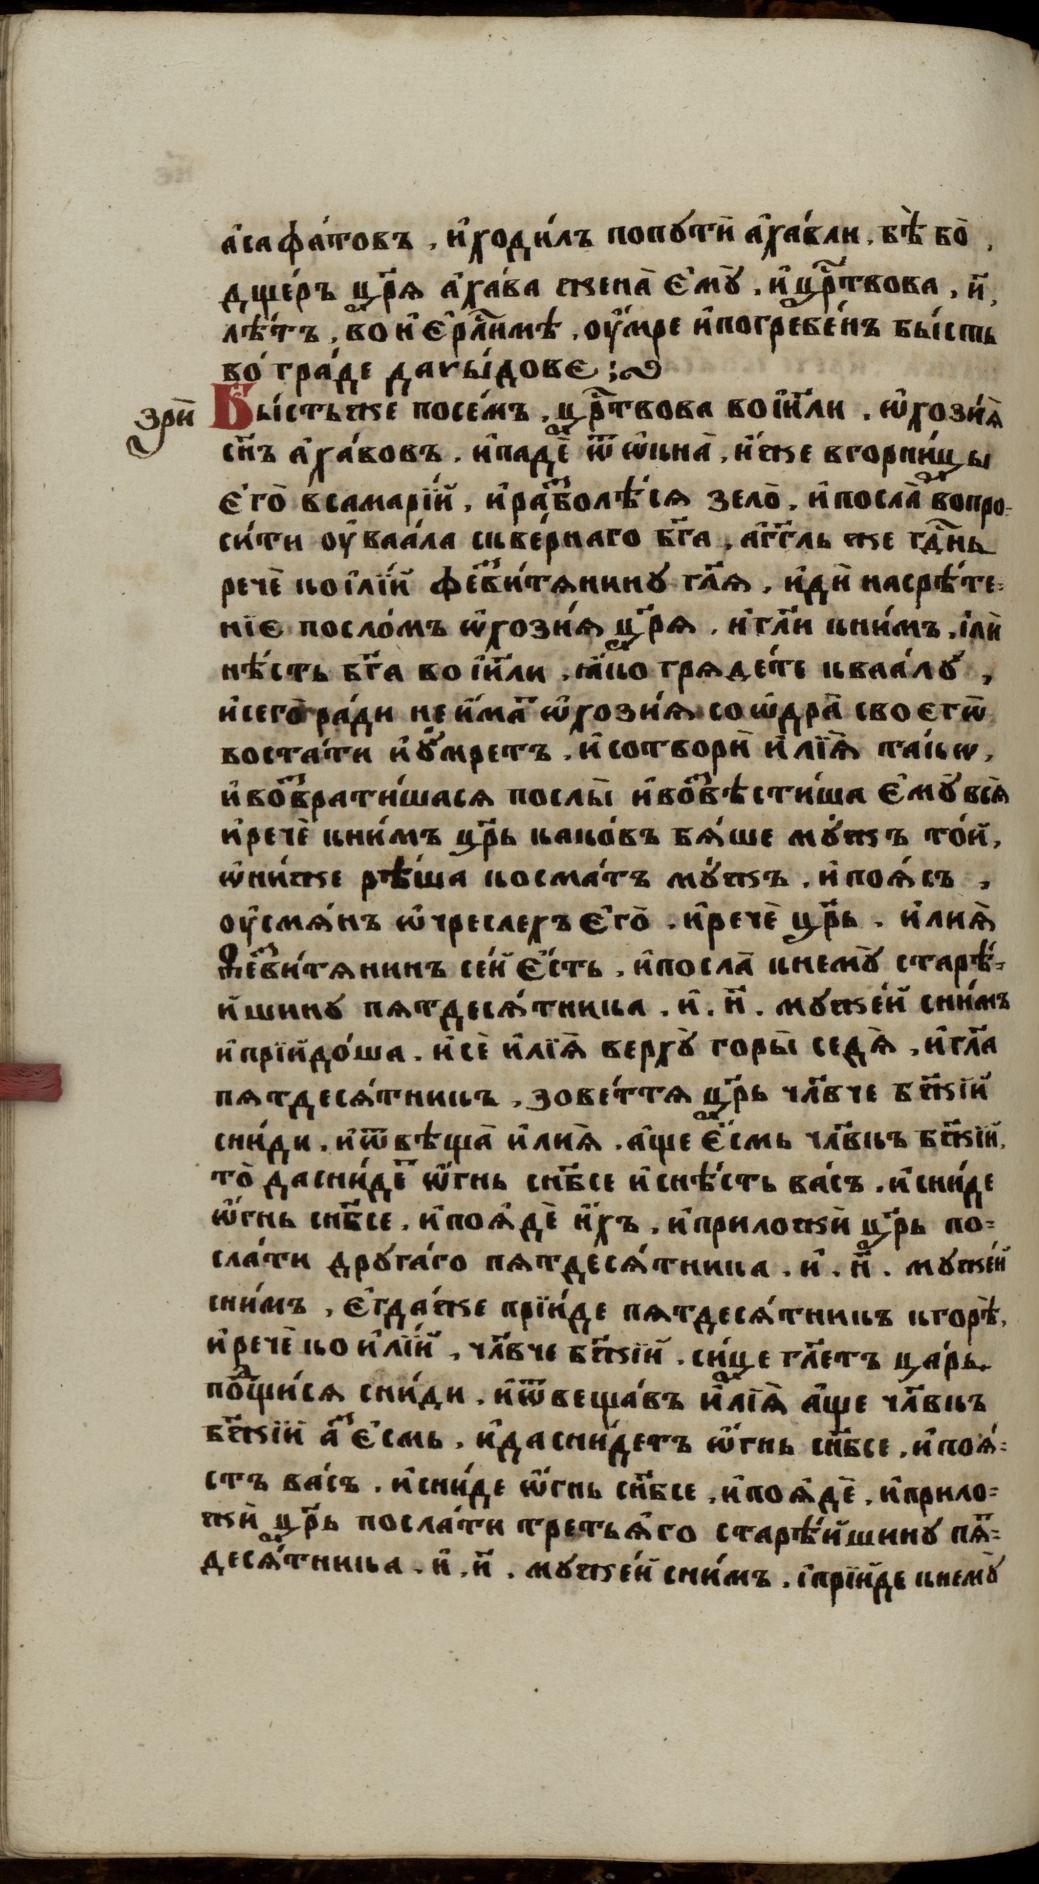 а҆сафа́товъ , и҆ ходи́лъ попути̑ а҆ха́вли , бѣ̀ бо̀ ,
дще́рь цр҃ѧ а҆ха́ва жена̀ є҆мꙋ̀ . и҆ цр҃твова , и҃ ,
лѣ́тъ , во и҆є҆рл҃имѣ , оу҆́мре и҆погребе́нъ бы́сть
во́ гра́де даѵы́дове ;
зри̑ Бы́стьже посе́мъ , цр҃твова во і҆и҃ли . ѡ҆хози́ѧ
сн҃ъ а҆ха́вовъ . и҆падѐ ѿ ѡ҆кна̀ , и҆́же вгорни́цы
є҆го̀ всамарі́й , и҆разболѣ́сѧ зело̀ , и҆посла̀ вопро-
си́ти оу҆ ваа́ла скве́рнаго бг҃а , а҆гг҃ль же гд҃нь
речѐ ко і҆лі́й феѕви́тѧнину гл҃ѧ , и҆ди̑ насрѣ́те-
ніе посло́мъ ѡ҆хози́ѧ цр҃ѧ , и҆ гл҃и кни́мъ . і҆ли̑
нѣ́сть бг҃а во і҆и҃ли , ꙗ҆́ко грѧде́те кваа́лꙋ ,
и҆сего̀ ра́ди не и҆́мат ѡ҆хози́ѧ со ѡ҆дра̀ своегѡ̀
воста́ти и҆ ꙋ҆́мретъ . и҆ сотвори̑ и҆лїѧ̀ та́кѡ ,
и҆ возврати́шасѧ послы̀ и҆ возвѣсти́ша є҆мꙋ̀ всѧ̀
и҆ речѐ кни́мъ цр҃ь како́въ бѧ́ше мꙋ́жъ то́й ,
ѡ҆ни́же рѣ́ша косма́тъ мꙋ́жъ . и҆ поѧ́съ ,
оу҆смѧ́нъ ѡ҆ чреслехъ є҆го̀ . и҆ речѐ цр҃ь . и҆лиѧ̀
Ѳезви́тѧнинъ се́й є҆́сть . и҆посла̀ кнемꙋ̀ старѣ́-
йшину пѧтдесѧ́тника . и҆ . н҃ . мꙋже́й сни́мъ
и҆прїйдо́ша . и҆ сѐ и҆лїѧ̀ верхꙋ̀ горы̀ седѧ̀ , и҆ гл҃а
пѧтдесѧ́тникъ , зове́ттѧ цр҃ь чл҃вче бж҃їй
сни́ди . и҆ѿвѣща̀ и҆лиѧ̀ . а҆ще є҆́смь чл҃вкъ бж҃їй ,
то̀ да сни́дет ѻ҆́гнь сн҃бсе и҆ снѣ́сть ва́съ . и҆ сни́де
ѻ҆́гнь сн҃бсе . и҆ поѧ҆дѐ и҆́хъ , и҆ приложи̑ цр҃ь по-
сла́ти дрꙋга́го пѧтдесѧ́тника . и҆ . н҃ . мꙋже́й
сни́мъ , є҆гда́же прїи́де пѧтдесѧ́тникъ кгорѣ̀ ,
и҆ речѐ ко и҆лі́й , чл҃вче бж҃їй . си́це гл҃етъ ца́рь
потщи́сѧ сни́ди . и҆ѿвеща́въ и҆лїѧ̀ а҆́ще чл҃вкъ
бж҃їй а҆з є҆́смь , и҆ да сни́детъ ѻ҆́гнь сн҃бсе , и҆ поѧ́-
стъ ва́съ . и҆ сни́де ѻ҆́гнь сн҃бсе , и҆ поѧ҆дѐ , и҆ прило-
жи̑ цр҃ь посла́ти третьѧ́го старѣ́йшину пѧт-
десѧ́тника . и҆ . н҃ . мꙋже́й сни́мъ . і҆ прїи́де кнемꙋ̀